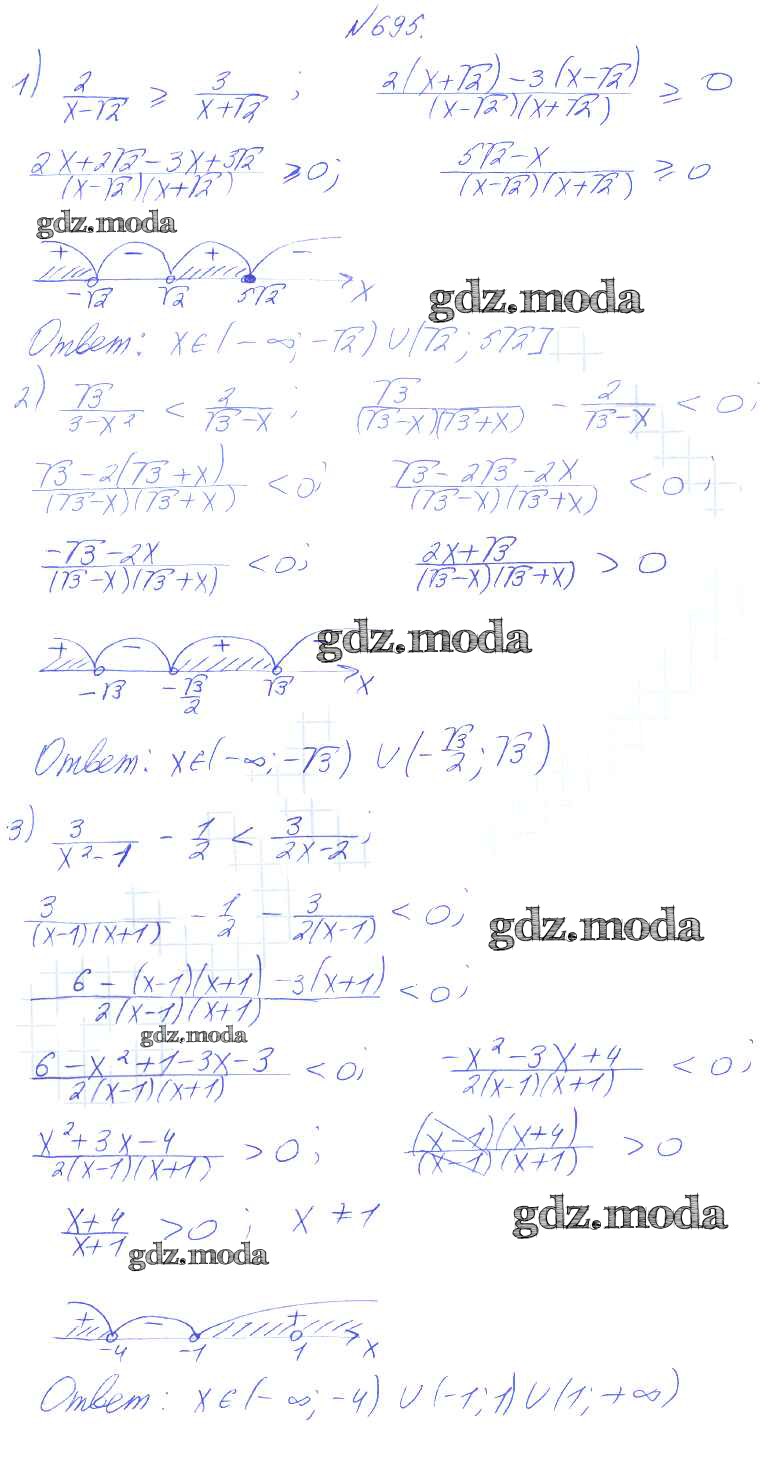 №695.
1) 2/(x-√2) ≥ 3/(x+√2) ; (2(x+√2)-3(x-√2))/((x-√2)(x+√2)) ≥ 0
(2x+2√2-3x+3√2)/((x-√2)(x+√2)) ≥0; (5√2-x)/((x-√2)(x+√2)) ≥0
gdz.moda
+ - + -
-√2 √2 5√2 x
gdz.moda
Ответ: x∈(-∞;-√2)∪(√2;5√2]
2) √3/(3-x²) < 2/(√3-x) ; √3/((√3-x)(√3+x)) - 2/(√3-x) < 0;
(√3-2(√3+x))/((√3-x)(√3+x)) <0; (√3-2√3-2x)/((√3-x)(√3+x)) <0;
(-√3-2x)/((√3-x)(√3+x)) <0; (2x+√3)/((√3-x)(√3+x)) > 0
gdz.moda
+ - + -
-√3 -√3/2 √3 x
Ответ: x∈(-∞;-√3) ∪(-√3/2;√3)
3) 3/(x²-1) - 1/2 < 3/(2x-2);
3/((x-1)(x+1)) - 1/2 - 3/(2(x-1)) <0;
gdz.moda
(6-(x-1)(x+1)-3(x+1))/(2(x-1)(x+1)) <0;
gdz.moda
(6-x²+1-3x-3)/(2(x-1)(x+1)) <0; (-x²-3x+4)/(2(x-1)(x+1)) <0;
(x²+3x-4)/(2(x-1)(x+1)) >0; ((x-1)(x+4))/((x-1)(x+1)) >0
(x+4)/(x+1) >0; x ≠1
gdz.moda
gdz.moda
+ - +
-4 -1 1 x
Ответ: x∈(-∞;-4) ∪(-1;1)∪(1;+∞)